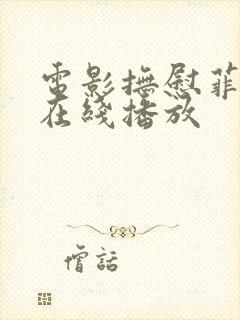 電影撫慰菲
在綫播放
僧話